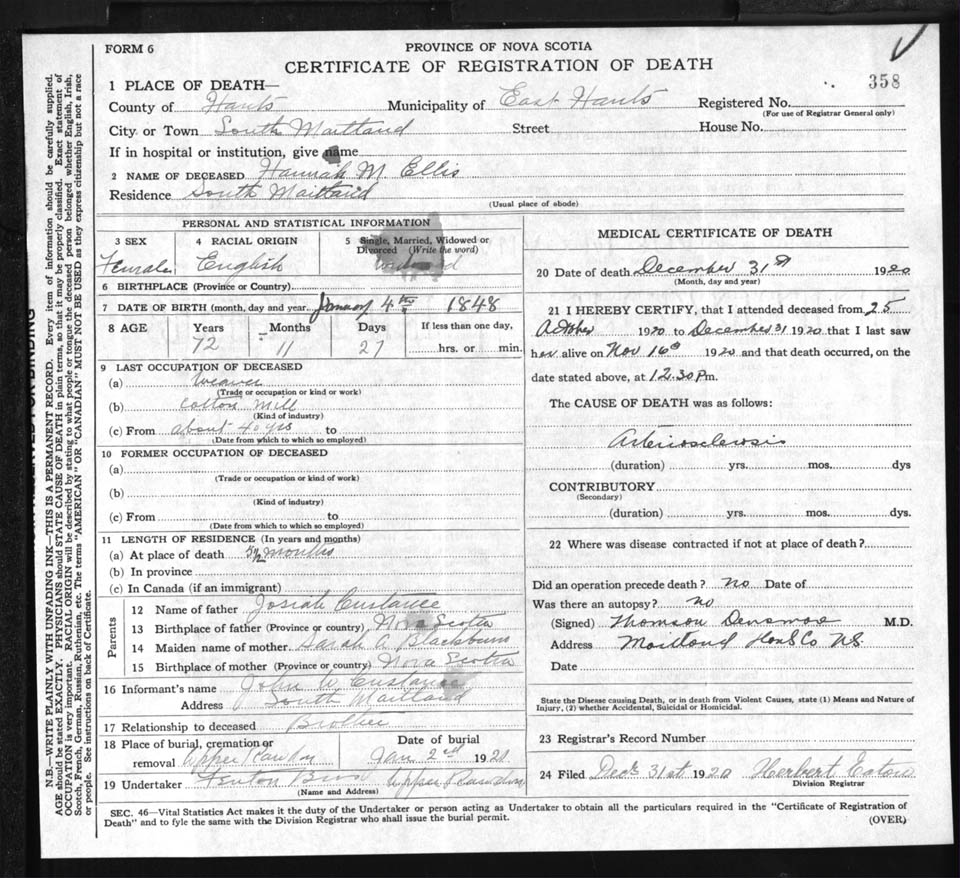 FORM 6
PROVINCE OF NOVA SCOTIA
CERTIFICATE OF REGISTRATION OF DEATH
358
1 PLACE OF DEATH—
County of Hants Municipality of East Hants Registered No.
(For use of Registrar General only)
City or Town South Maitland Street House No.
If in hospital or institution, give name
2 NAME OF DECEASED Hannah M Ellis
Residence South Maitland
(Usual place of abode)
PERSONAL AND STATISTICAL INFORMATION
3 SEX 4 RACIAL ORIGIN 5 Single, Married, Widowed or Divorced (Write the word)
Female English widowed
6 BIRTHPLACE (Province or Country)
7 DATE OF BIRTH (month, day and year. January 4th 1848
8 AGE Years Months Days If less than one day,
72 11 27 hrs. or min.
9 LAST OCCUPATION OF DECEASED
(a) Weaver
(Trade or occupation or kind or work)
(b) Cotton Mill
(Kind of industry)
(c) From about 40 yrs to
(Date from which to which so employed)
10 FORMER OCCUPATION OF DECEASED
(a)
(Trade or occupation or kind of work)
(b)
(Kind of industry)
(c) From to
(Date from which to which so employed)
11 LENGTH OF RESIDENCE (In years and months)
(a) At place of death months
(b) In province
(c) In Canada (if an immigrant)
Parents
12 Name of father Josiah Custance
13 Birthplace of father (Province or country) Nova Scotia
14 Maiden name of mother Sarah A Blackburn
15 Birthplace of mother (Province or country) Nova Scotia
16 Informant's name John W Custance
Address South Maitland
17 Relationship to deceased Brother
18 Place of burial, cremation or removal Upper Rawdon
Date of burial Jan 2nd 1921
19 Undertaker Fenton Bros Upper Rawdon
(Name and Address)
MEDICAL CERTIFICATE OF DEATH
20 Date of death December 31st 1920
(Month, day and year)
21 I HEREBY CERTIFY, that I attended deceased from 25
October 1920 to December 31 1920 that I last saw
her alive on Nov 16th 1920 and that death occurred, on the
date stated above, at 12.30 Pm.
The CAUSE OF DEATH was as follows:
Arteriosclerosis
(duration) yrs. mos. dys
CONTRIBUTORY
(Secondary)
(duration) yrs. mos. dys.
22 Where was disease contracted if not at place of death?
Did an operation precede death? no Date of
Was there an autopsy? no
(Signed) Thomson Densmore M.D.
Address Maitland Hants Co NS
Date
State the Disease causing Death, or in death from Violent Causes, state (1) Means and Nature of
Injury, (2) whether Accidental, Suicidal or Homicidal.
23 Registrar's Record Number
24 Filed Dec 31st 1920 Herbert Eaton
Division Registrar
SEC. 46—Vital Statistics Act makes it the duty of the Undertaker or person acting as Undertaker to obtain all the particulars required in the "Certificate of Registration of
Death" and to fyle the same with the Division Registrar who shall issue the burial permit.
(OVER)
N.B.—WRITE PLAINLY WITH UNFADING INK—THIS IS A PERMANENT RECORD. Every item of information should be carefully supplied.
AGE should be stated EXACTLY. PHYSICIANS should STATE CAUSE OF DEATH in plain terms, so that it may be properly classified. Exact statement of
OCCUPATION is very important. RACIAL ORIGIN will be described by stating to what people or tongue the deceased person belonged, whether English, Irish,
Scotch, French, German, Russian, Ruthenian, etc. The terms "AMERICAN" OR "CANADIAN" MUST NOT BE USED as they express citizenship but not a race
or people. See instructions on back of Certificate.